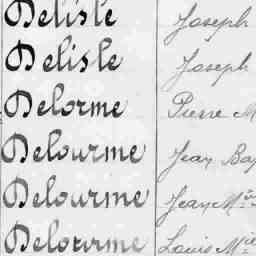 Delisle Joseph
Delisle Joseph
Delorme Pierre M
Delourme Jean Bap
Delourme Jean M
Delourme Louis M